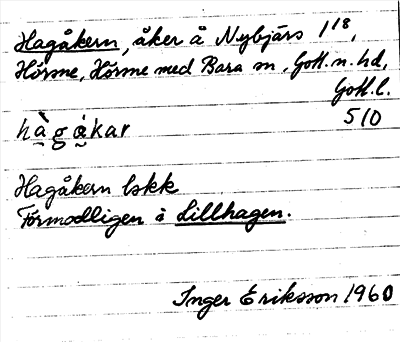 Hagåkern, åker å Nybjärs 1¹⁸,
Hörsne, Hörsne med Bara sn, Gotl. n. hd,
Gotl. l.
510
hàgåkar
Hagåkern lskk
Förmodligen å Lillhagen.
Inger Eriksson 1960